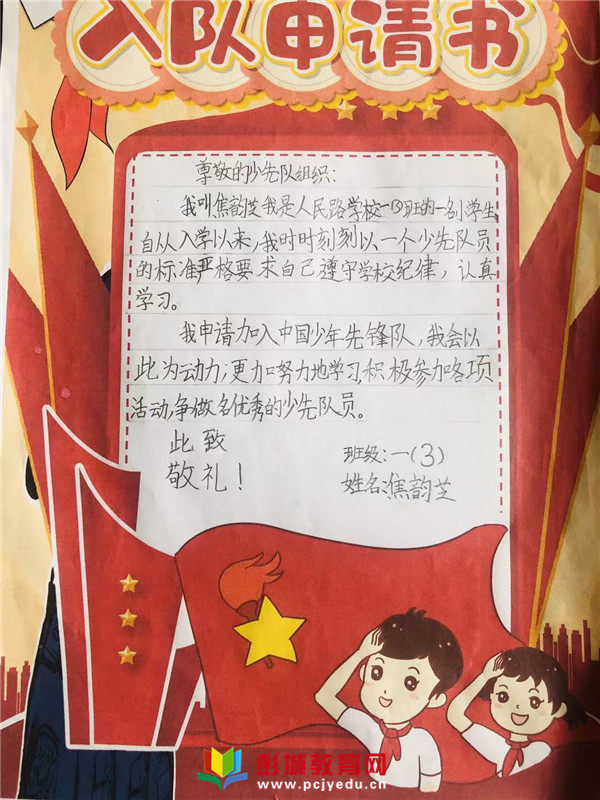 入队申请书
尊敬的少先队组织:
我叫焦韵芝我是人民路学校一③班的一名小学生,
自从入学以来,我时时刻刻以一个少先队员
的标准严格要求自己遵守学校纪律,认真
学习。
我申请加入中国少年先锋队,我会以
此为动力,更加努力地学习,积极参加各项
活动,争做名优秀的少先队员。
此致
敬礼!
班级:一(3)
姓名:焦韵芝
彭城教育网
www.pcjyedu.cn